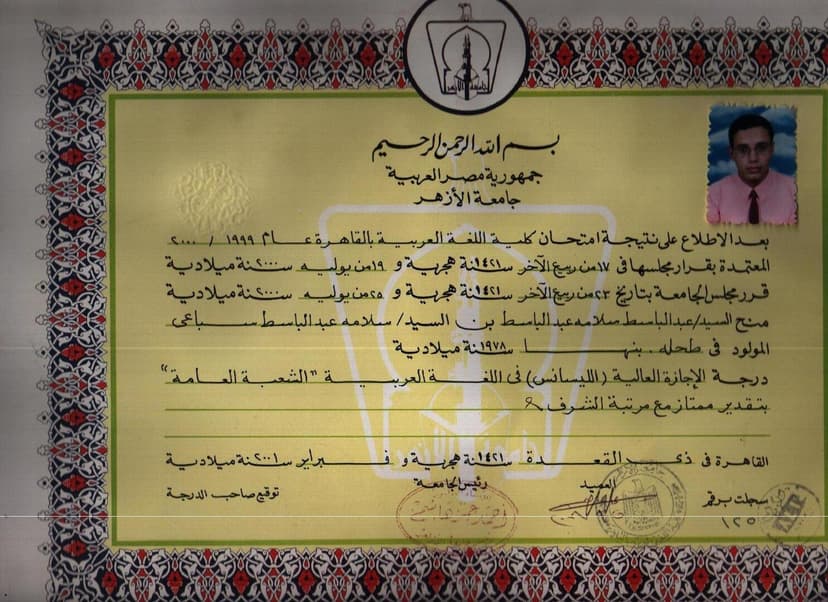 جامعة الأزهر
بسم الله الرحمن الرحيم
جمهورية مصر العربية
جامعة الأزهر
بعد الاطلاع على نتيجة امتحان كلية اللغة العربية بالقاهرة عام ١٩٩٩ / ٢٠٠٠
المعتمدة بقرار مجلسها فى ١٧ من ربيع الآخر سنة ١٤٢١ هجرية و ١٩ من يوليه سنة ٢٠٠٠ ميلادية
قرر مجلس الجامعة بتاريخ ٢٣ من ربيع الآخر سنة ١٤٢١ هجرية و ٢٥ من يوليه سنة ٢٠٠٠ ميلادية
منح السيد/ عبد الباسط سلامه عبد الباسط بن السيد/ سلامه عبد الباسط سباعى
المولود فى طحله . بنها سنة ١٩٧٨ ميلادية
درجة الإجازة العالية (الليسانس) فى اللغة العربية "الشعبة العامة"
بتقدير ممتاز مع مرتبة الشرف
القاهرة فى ذى القعدة سنة ١٤٢١ هجرية و فبراير سنة ٢٠٠١ ميلادية
سجلت برقم العميد رئيس الجامعة توقيع صاحب الدرجة
١٢٥